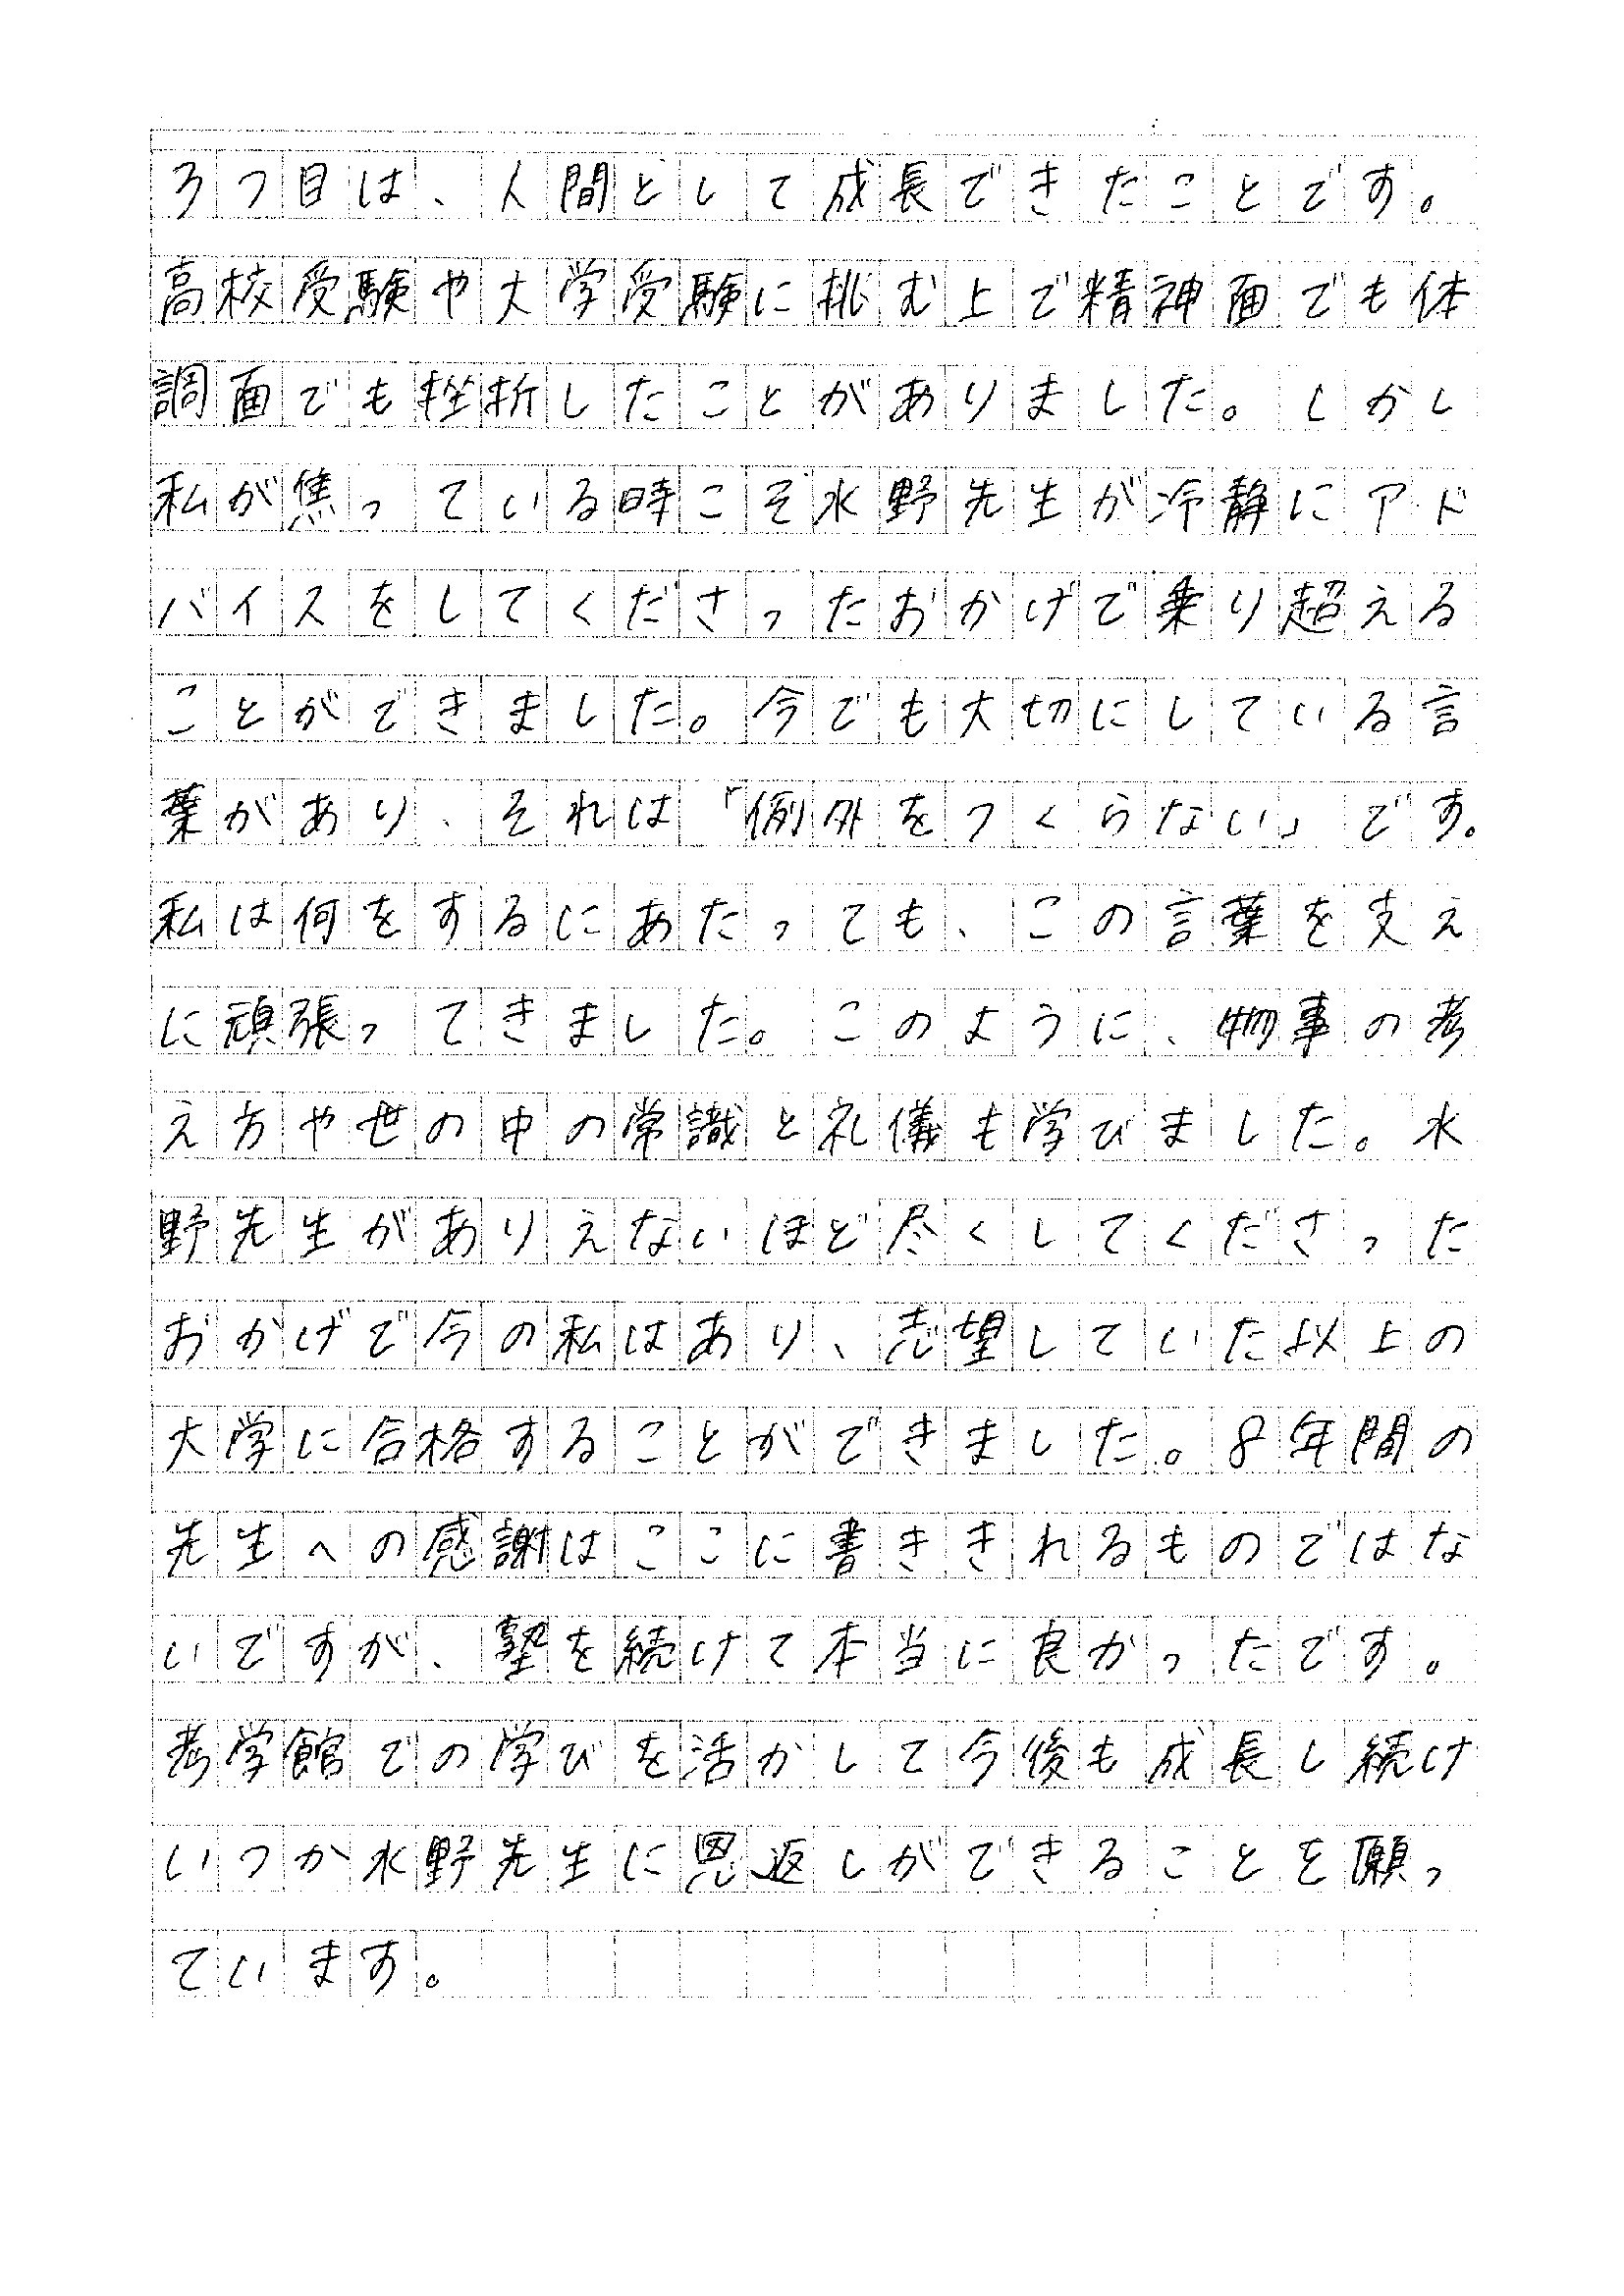 3つ目は、人間として成長できたことです。
高校受験や大学受験に挑む上で精神面でも体
調面でも挫折したことがありました。しかし
私が焦っている時こそ水野先生が冷静にアド
バイスをしてくださったおかげで乗り超える
ことができました。今でも大切にしている言
葉があり、それは「例外をつくらない」です。
私は何をするにあたっても、この言葉を支え
に頑張ってきました。このように、物事の考
え方や世の中の常識と礼儀も学びました。水
野先生がありえないほど尽くしてくださった
おかげで今の私はあり、志望していた以上の
大学に合格することができました。8年間の
先生への感謝はここに書ききれるものではな
いですが、塾を続けて本当に良かったです。
考学館での学びを活かして今後も成長し続け
いつか水野先生に恩返しができることを願っ
ています。